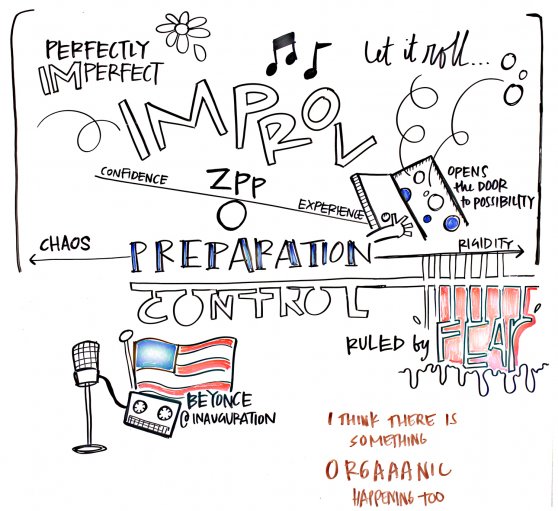 PERFECTLY
IMPERFECT
let it roll...
IMPROV
CONFIDENCE
ZPP
EXPERIENCE
OPENS
the DOOR
to POSSIBILITY
CHAOS
PREPARATION
RIGIDITY
CONTROL
RULED by FEAR
BEYONCE
@ INAUGURATION
I THINK THERE IS
SOMETHING
ORGAAANIC
HAPPENING TOO